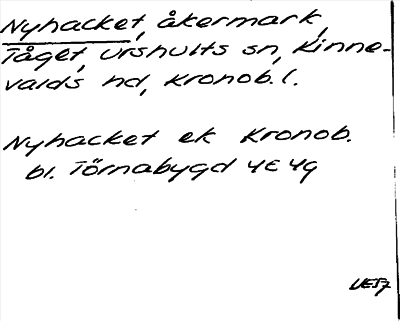 Nyhacket, åkermark,
Tåget, Urshults sn, Kinne-
valds hd, Kronob. l.
Nyhacket ek Kronob.
bl. Törnabygd 4E 4g